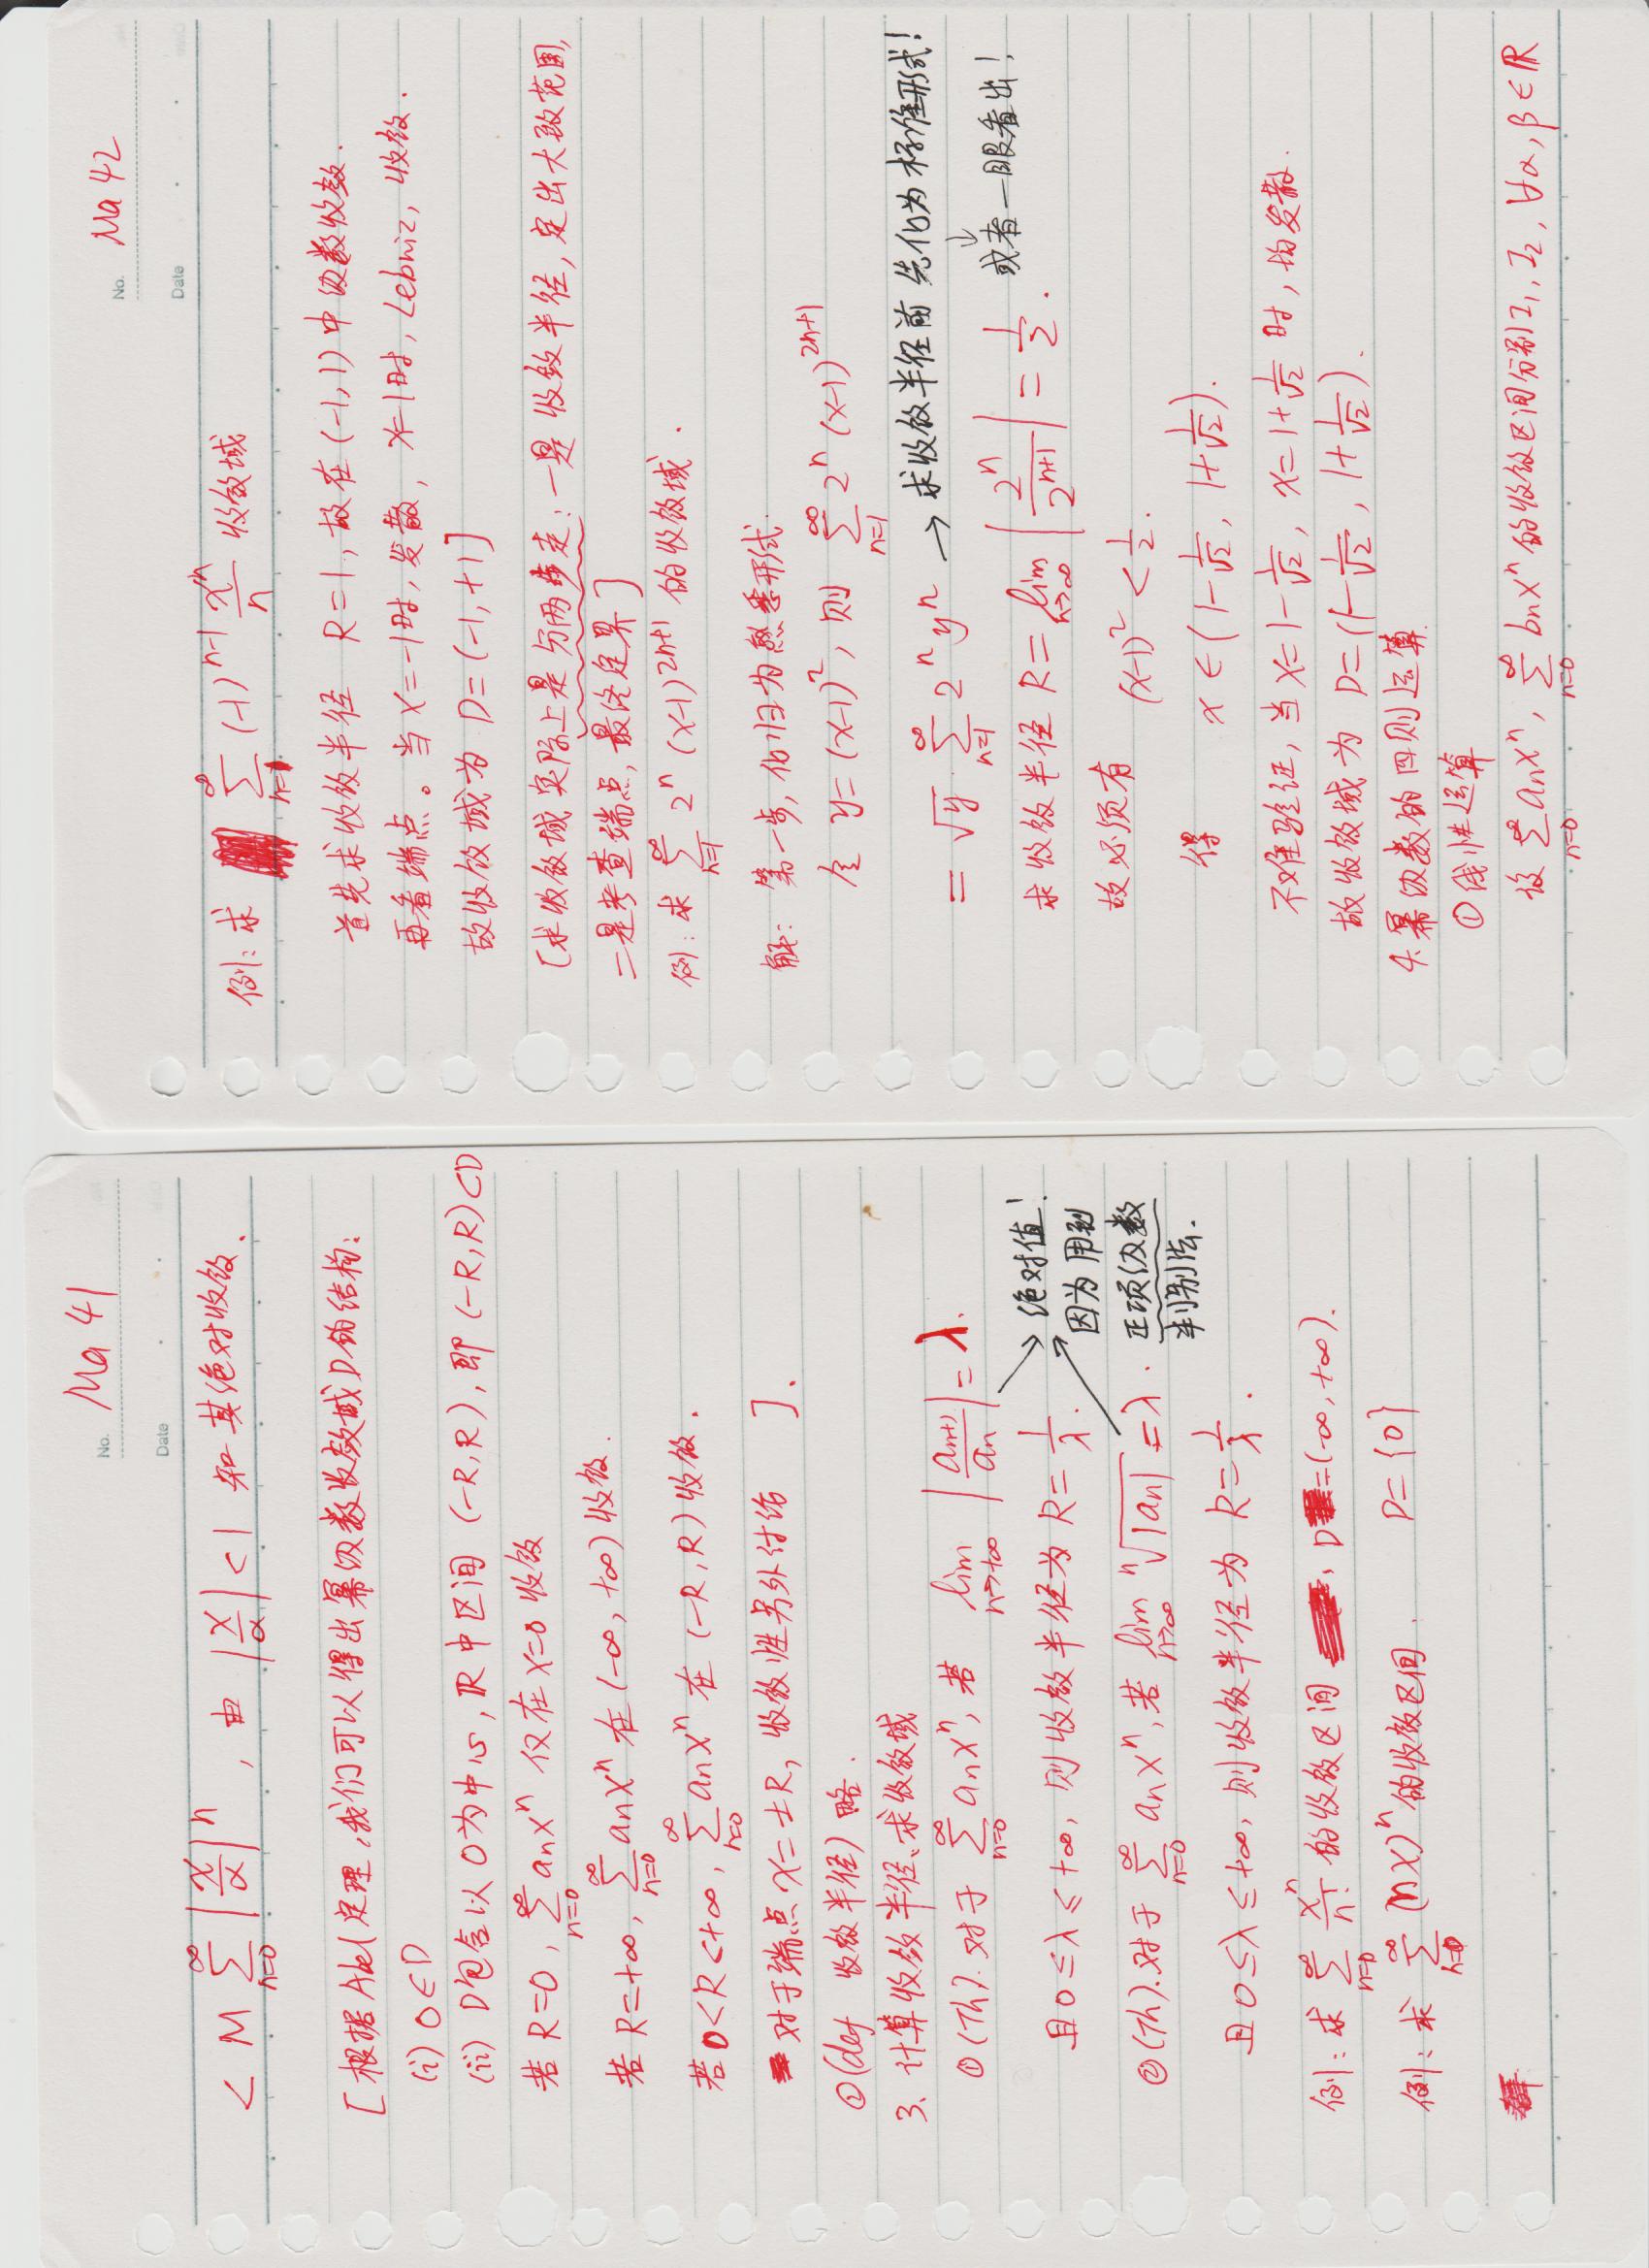 No. Ma 41
Date
< M ∑_{n=0}^{∞} |x/α|^n , 由 |x/α| < 1 知其绝对收敛.
[根据Abel定理,我们可以得出幂级数收敛域D的结构:
(i) 0∈D
(ii) D包含以0为中心, R中区间 (-R,R), 即 (-R,R)⊂D
若 R=0, ∑_{n=0}^{∞} a_n x^n 仅在 x=0 收敛
若 R=+∞, ∑_{n=0}^{∞} a_n x^n 在 (-∞, +∞) 收敛.
若 0<R<+∞, ∑_{n=0}^{∞} a_n x^n 在 (-R, R) 收敛.
对于端点 x=±R, 收敛性另外讨论 ].
②(def 收敛半径) 略.
3. 计算收敛半径、求收敛域
①(Th). 对于 ∑_{n=0}^{∞} a_n x^n, 若 lim_{n→+∞} |a_{n+1}/a_n| = λ.
且 0≤λ≤+∞, 则收敛半径为 R=1/λ.
→ 绝对值!
因为用到
正项级数
判别法.
②(Th). 对于 ∑_{n=0}^{∞} a_n x^n, 若 lim_{n→∞} ⁿ√|a_n| = λ.
且 0≤λ≤+∞, 则收敛半径为 R=1/λ.
例: 求 ∑_{n=0}^{∞} x^n/n! 的收敛区间 , D=(-∞, +∞).
例: 求 ∑_{n=0}^{∞} (nx)^n 的收敛区间. D={0}
No. Ma 42
Date
例: 求 ∑_{n=1}^{∞} (-1)^{n-1} x^n/n 收敛域
首先求收敛半径 R=1, 故在 (-1,1) 中级数收敛.
再看端点。当 x=-1时, 发散, x=1时, Lebniz, 收敛.
故收敛域为 D=(-1,+1]
[求收敛域实际上是分两步走: 一是收敛半径, 定出大致范围,
二是考查端点, 最终定界]
例: 求 ∑_{n=1}^{∞} 2^n (x-1)^{2n+1} 的收敛域.
解: 第一步, 化归为熟悉形式.
令 y=(x-1)^2, 则 ∑_{n=1}^{∞} 2^n (x-1)^{2n+1}
= √y · ∑_{n=1}^{∞} 2^n y^n → 求收敛半径前 先化为标准形式!
↓
或者一眼看出!
求收敛半径 R = lim_{n→∞} |2^n/2^{n+1}| = 1/2.
故必须有 (x-1)^2 < 1/2.
得 x∈(1-1/√2, 1+1/√2).
不难验证, 当 x=1-1/√2, x=1+1/√2 时, 均发散.
故收敛域为 D=(1-1/√2, 1+1/√2).
4. 幂级数的四则运算
①线性运算
设 ∑_{n=0}^{∞} a_n x^n, ∑_{n=0}^{∞} b_n x^n 的收敛区间分别I₁, I₂, ∀α, β∈ℝ